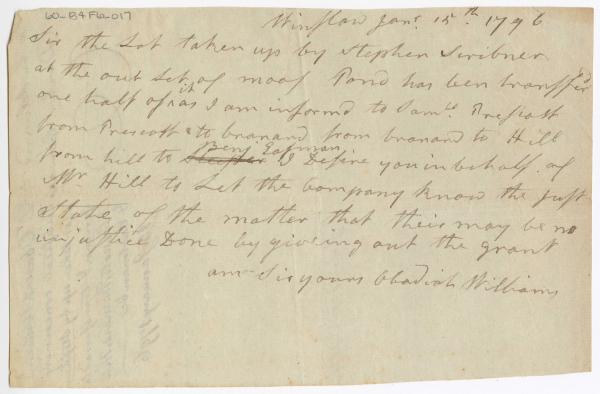 60-B4F6-017
Winslow Janr. 15th 1796
Sir the Lot taken up by Stephen Scribner
at the out Let of moos Pond has been transferd
one half of it as I am informd to Saml. Prescott
from Prescott & to branard from branard to Hill
from hill to Benj Eastman I Desire you in behalf of
Mr. Hill to Let the Company know the just
State of the matter that their may be no
injustice Done by giveing out the grant
am Sir yours Obadiah Williams